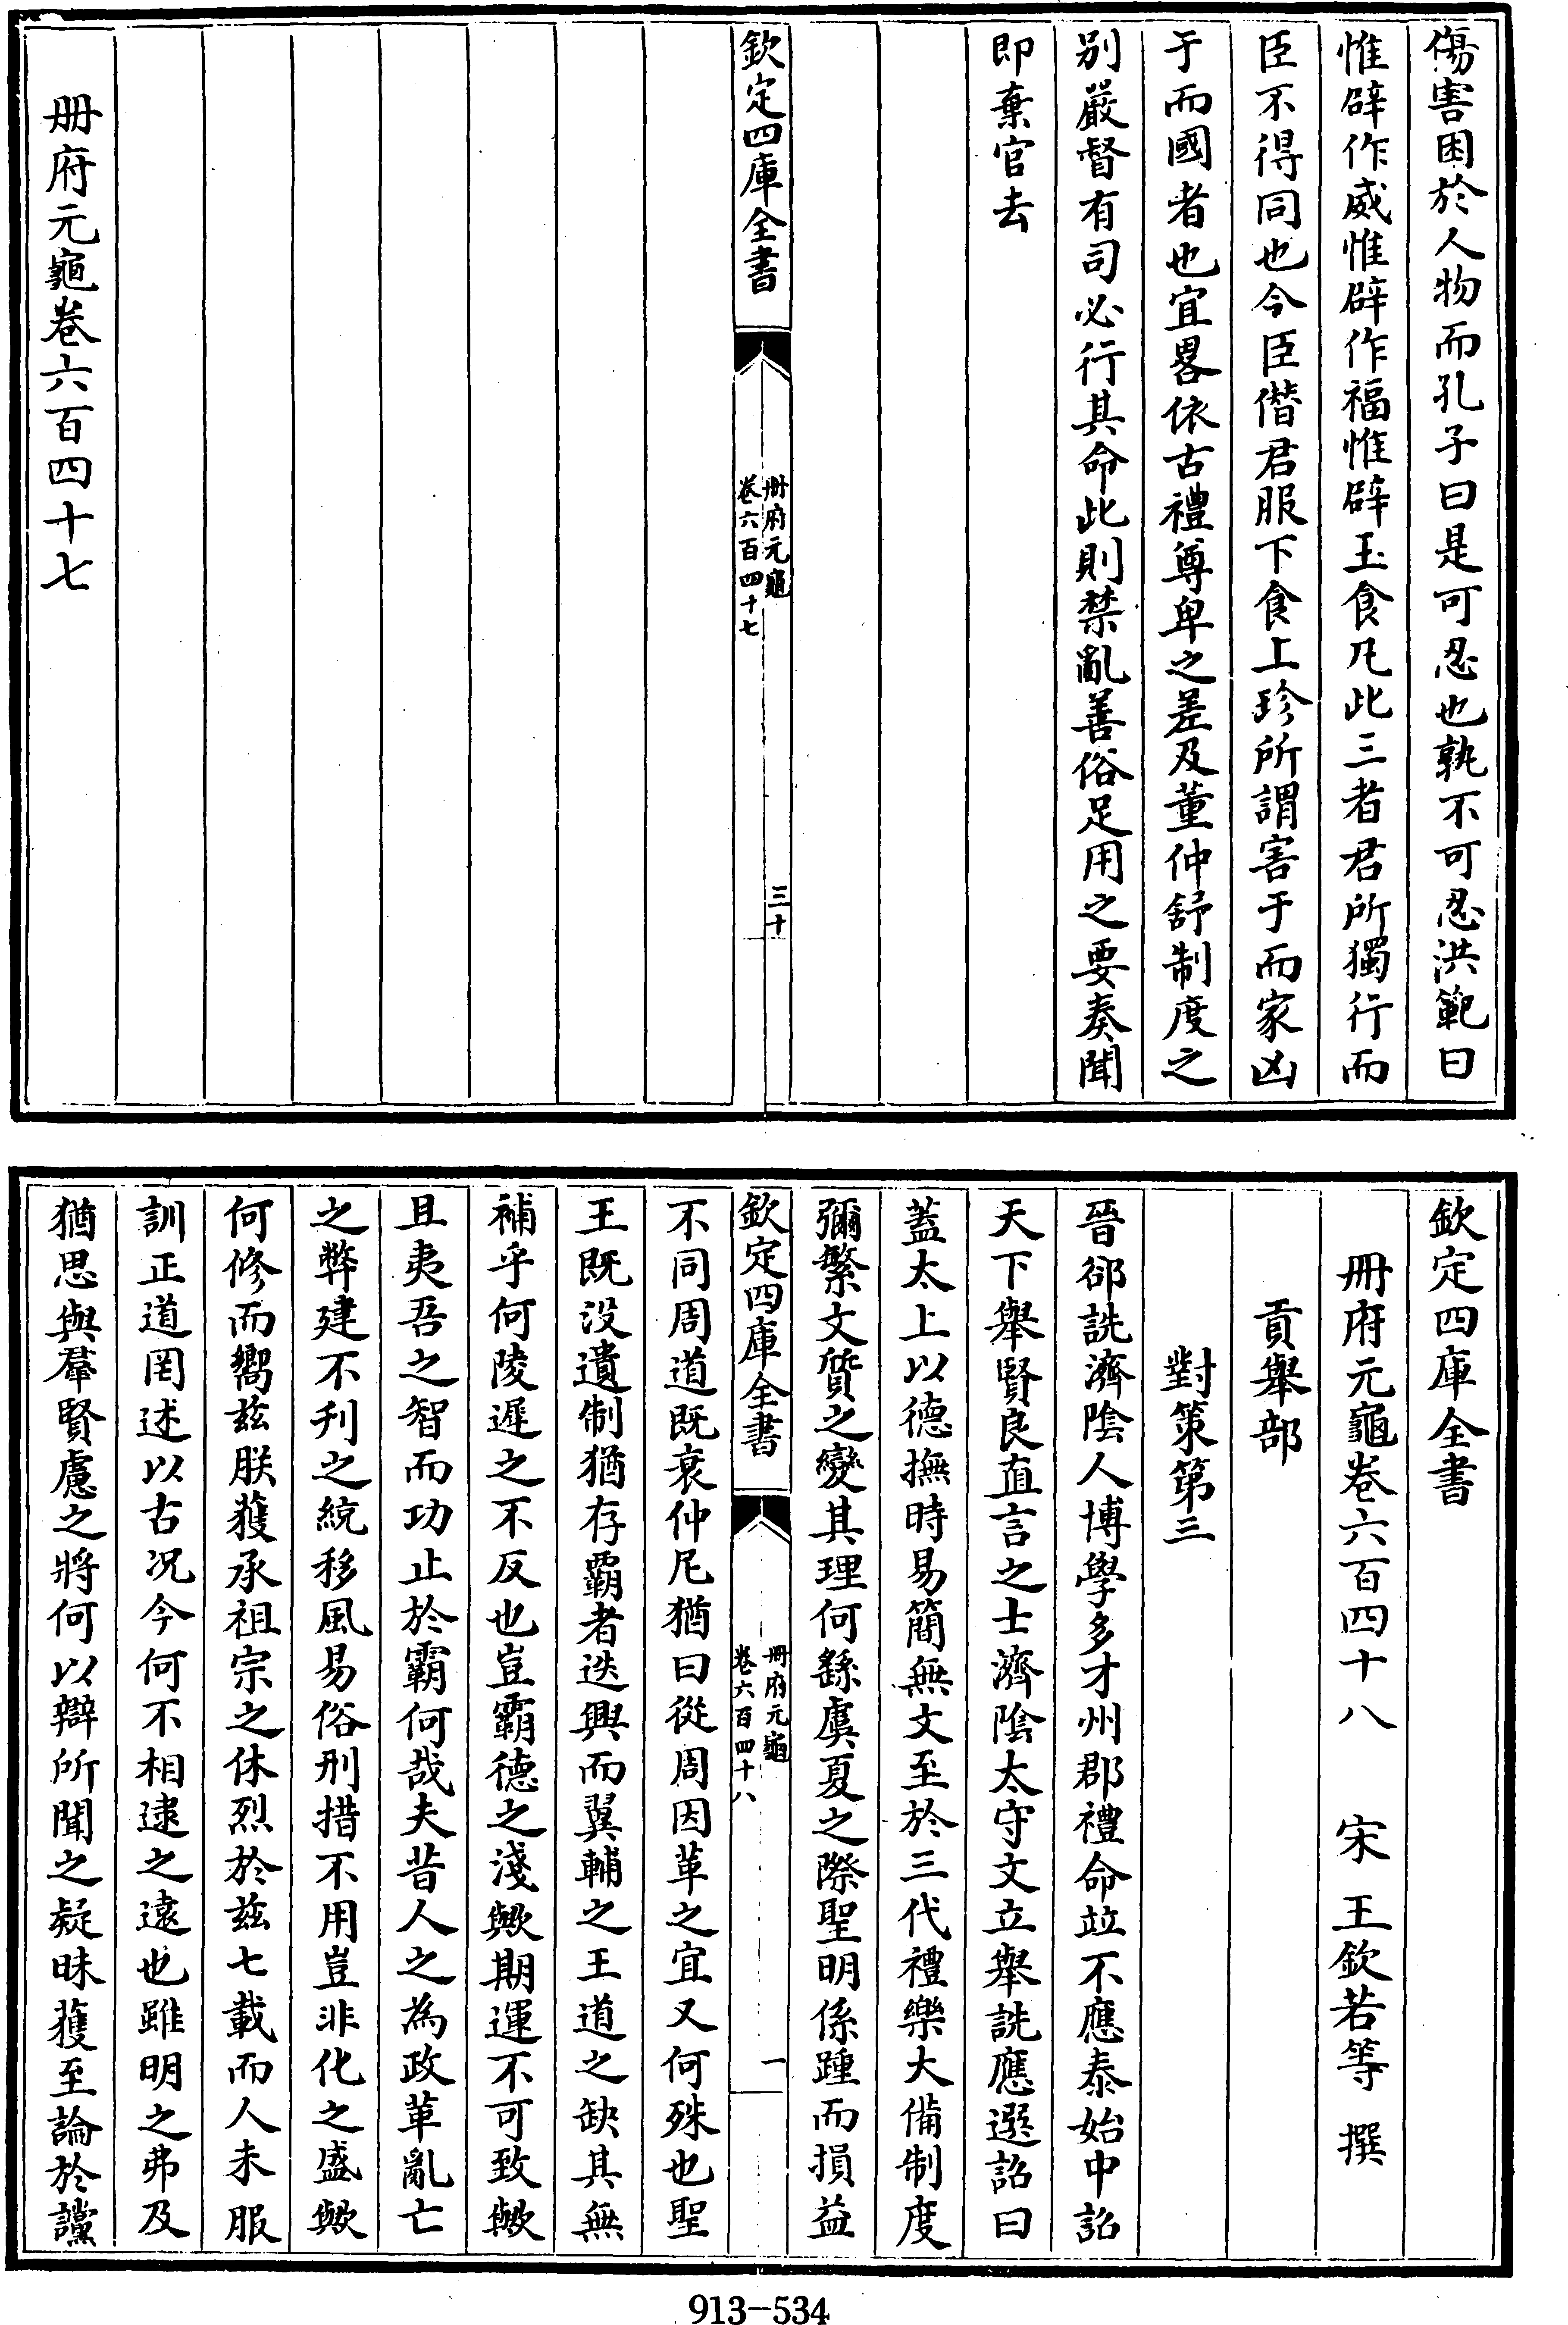 傷害困於人物而孔子曰是可忍也孰不可忍洪範曰
惟辟作威惟辟作福惟辟玉食凡此三者君所獨行而
臣不得同也今臣僭君服下食上珍所謂害于而家凶
于而國者也宜畧依古禮尊卑之差及董仲舒制度之
别嚴督有司必行其命此則禁亂善俗足用之要奏聞
即棄官去
欽定四庫全書
冊府元龜
卷六百四十七
三十
冊府元龜卷六百四十七
欽定四庫全書
冊府元龜卷六百四十八 宋 王欽若等 撰
貢舉部
對策第三
晉郤詵濟陰人博學多才州郡禮命竝不應泰始中詔
天下舉賢良直言之士濟陰太守文立舉詵應選詔曰
蓋太上以德撫時易簡無文至於三代禮樂大備制度
彌繁文質之變其理何繇虞夏之際聖明係踵而損益
欽定四庫全書
冊府元龜
卷六百四十八
一
不同周道既衰仲尼猶曰從周因革之宜又何殊也聖
王既没遺制猶存覇者迭興而翼輔之王道之缺其無
補乎何陵遲之不反也豈霸德之淺歟期運不可致歟
且夷吾之智而功止於霸何哉夫昔人之為政革亂亡
之弊建不刋之統移風易俗刑措不用豈非化之盛歟
何修而嚮兹朕獲承祖宗之休烈於兹七載而人未服
訓正道罔述以古况今何不相逮之遠也雖明之弗及
猶思與羣賢慮之將何以辯所聞之疑昧獲至論於讜
913-534